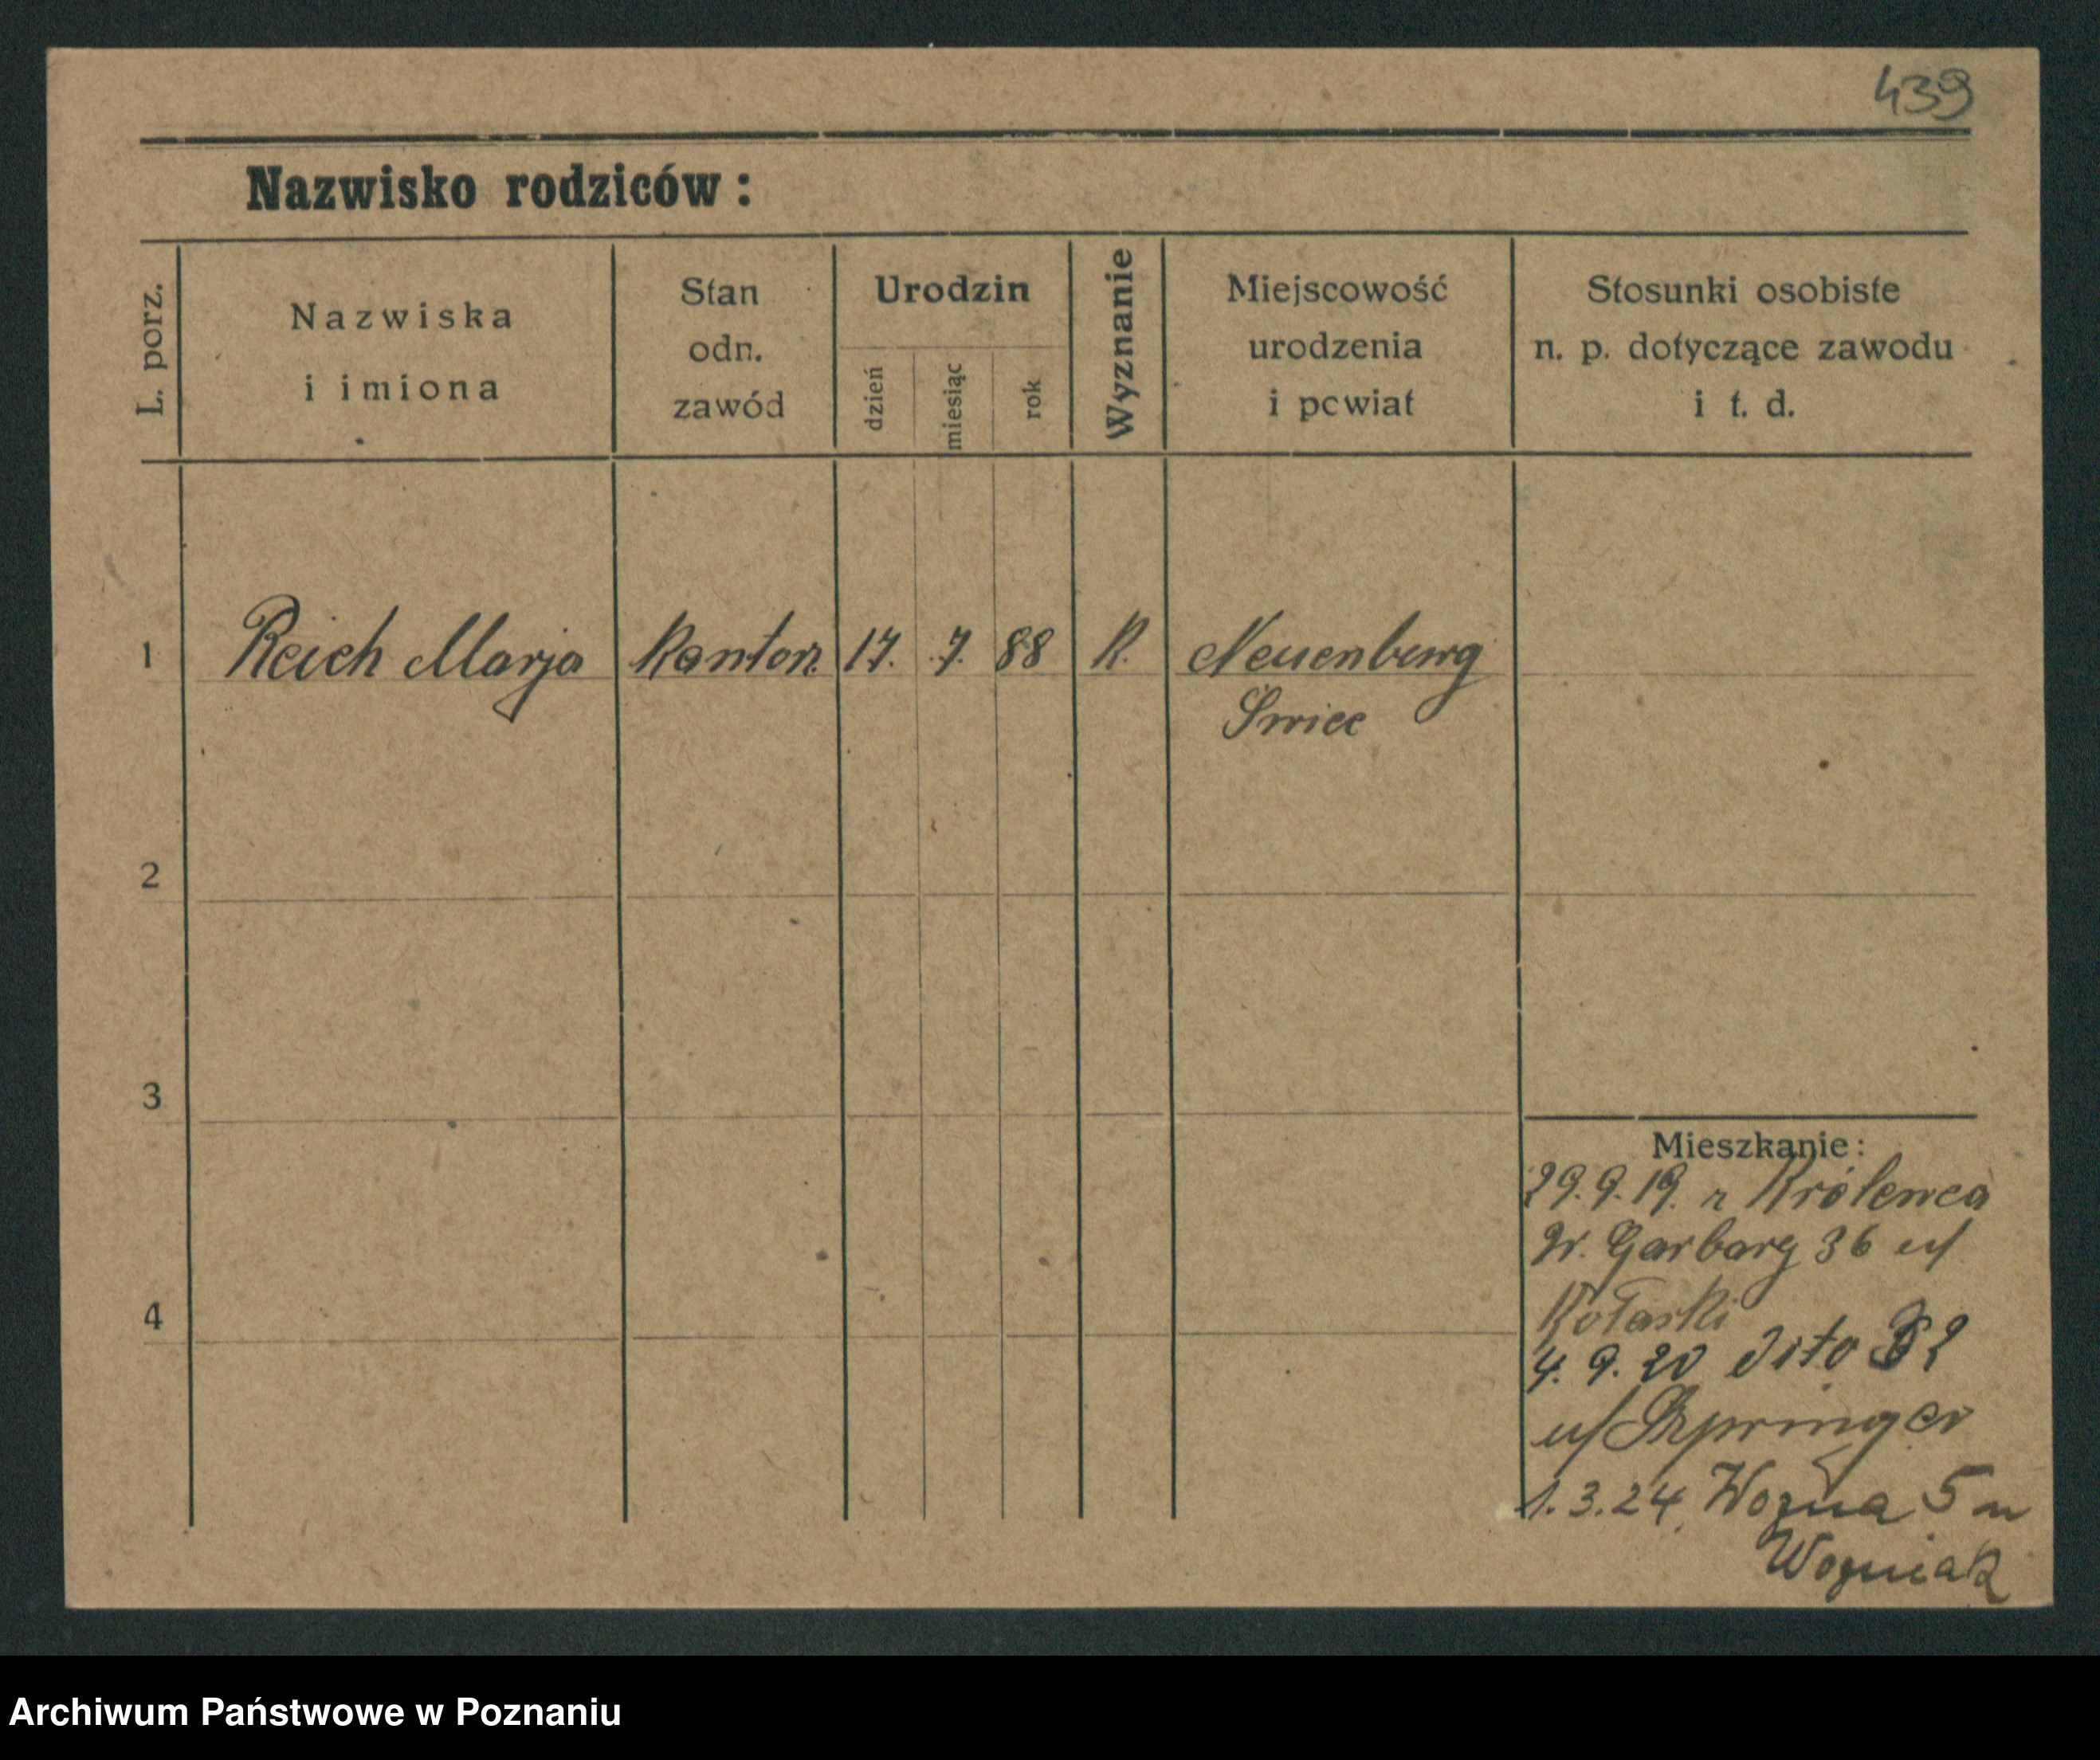 439
Nazwisko rodziców:
L. porz.
Nazwiska
i imiona
Stan
odn.
zawód
Urodzin
dzień
miesiąc
rok
Wyznanie
Miejscowość
urodzenia
i powiat
Stosunki osobiste
n. p. dotyczące zawodu
i t. d.
1 Reich Marja Kantor. 17. 7. 88 K. Neuenburg
Swiec
2
3
4
Mieszkanie:
29.9.19. z Królewca
W. Garbary 36 u/
Kotaski
4. 9. 20 dito 32
u/ Szpringer
1.3.24. Wozna 5 m
Wozniak
Archiwum Państwowe w Poznaniu